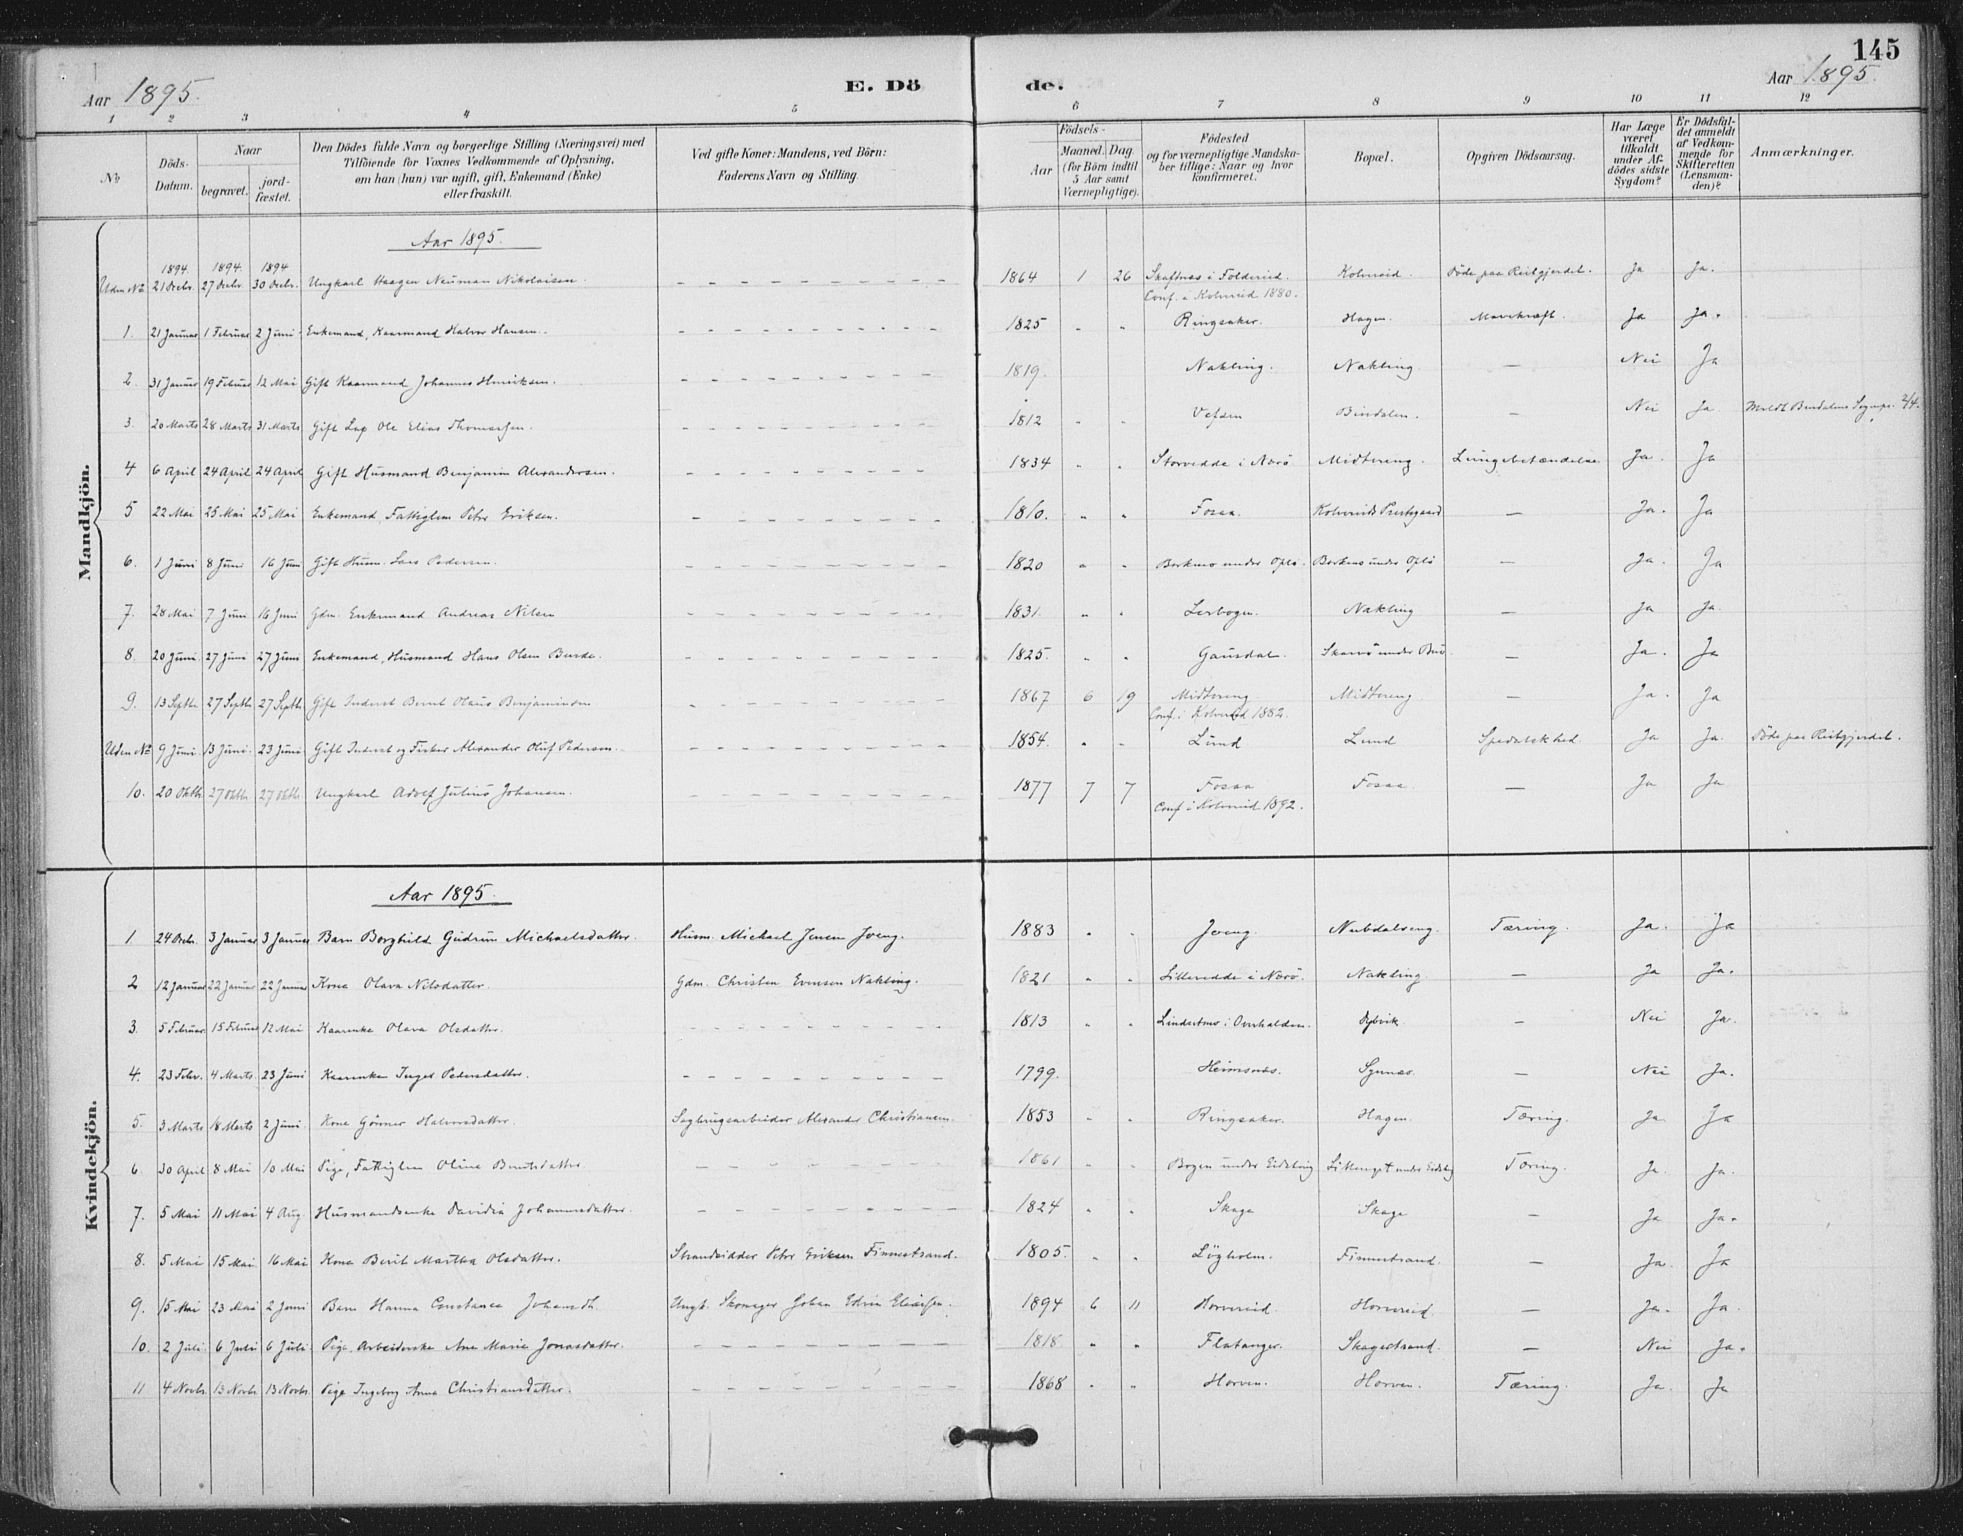 145
Aar 1895.
E. Dö
de.
Aar 1895.
1 2 3 4 5 6 7 8 9 10 11 12
No
Döds-Datum.
Naar
begravet.
jord-fæstet.
Den Dödes fulde Navn og borgerlige Stilling (Næringsvei) med
Tilföiende for Voxnes Vedkommende af Oplysning,
om han (hun) var ugift, gift, Enkemand (Enke)
eller fraskilt.
Ved gifte Koner: Mandens, ved Börn:
Faderens Navn og Stilling.
Födsels-
Aar
Maaned. Dag
(for Börn indtil
5 Aar samt
Værnepligtige).
Födested
og for værnepligtige Mandska-
ber tillige: Naar og hvor
konfirmeret.
Bopæl.
Opgiven Dödsaarsag.
Har Læge
været
tilkaldt
under Af-
dödes sidste
Sygdom?
Er Dödsfal-
det anmeldt
af Vedkom-
mende for
Skifteretten
(Lensman-
den)?
Anmærkninger.
Mandkjön.
Aar 1895.
1894. 1894. 1894
Uden No 21 Decbr. 27 Decbr. 30 Decbr. Ungkarl Haagen Neuman Nikolaisen. 1864 1 26 Skaftnæs i Foldereid. Kolvereid. Döde paa Reitgjerdet. Ja Ja.
Conf. i Kolvereid 1880.
1. 21 Januar 1 Februar 2 Juni Enkemand, Kaarmand Halvor Hansen. 1825 " " Ringsaker. Hagen. Mavekræft. Ja Ja.
2. 31 Januar 19 Februar 12 Mai Gift Kaarmand Johannes Henriksen. 1819. Nakling. Nakling — Nei Ja
3. 20 Marts 28 Marts 31 Marts Gift Lap Ole Elias Thomassen. 1812 " " Vefsen Bindalen. — Nei Ja Meldt Bindalens Sognepr. 2/4.
4 6 April 24 April 24 April Gift Husmand Benjamin Alexandersen. 1834 " " Storvedde i Nærö Midtereng. Lungebetændelse Ja. Ja
5 22 Mai 25 Mai 25 Mai Enkemand, Fattiglem Peter Eriksen. 1810. " " Fosaa. Kolvereids Prestegaard — Ja. Ja
6. 1 Juni 8 Juni 16 Juni Gift Husm. Lars Pedersen. 1820 " " Borkmo under Oplö. Borkmo under Oplö — Ja. Ja
7. 28 Mai 7 Juni 16 Juni Gdm. Enkemand Andreas Nilsen 1831. " " Leirbogen. Nakling — Ja Ja.
8 20 Juni 27 Juni 27 Juni Enkemand, Husmand Hans Olsen Burde. 1825. " " Gausdal. — Ja. Ja
9. 13 Septbr. 27 Septbr 27 Septbr Gift Inderst Bernt Olaus Benjaminsen 1867 6 19 Midtereng Midtereng. — Ja. Ja
Conf. i Kolvereid 1882.
Uden No 9 Juni. 13 Juni. 23 Juni Gift Inderst og Fisker Alexander Oluf Pedersen. 1854. " " Lund Lund Spedalskhed. Ja Ja. Döde paa Reitgjerdet.
10. 20 Oktbr. 27 Oktbr. 27 Oktbr Ungkarl Adolf Julius Johansen. 1877 7 7 Fosaa Fosaa. — Ja Ja
Conf. i Kolvereid 1892.
Kvindekjön.
Aar 1895.
1 24 Decbr. 3 Januar 3 Januar Barn Borghild Gudrun Michaelsdatter. Husm. Michael Jensen Joeng. 1883 " " Joeng Nubdalseng. Tæring. Ja. Ja
2 12 Januar 22 Januar 22 Januar Kone Olava Nilsdatter. Gdm. Christen Evensen Nakling. 1821 " " Lillevedde i Nærö. Nakling. — Ja Ja.
3. 5 Februar 15 Februar 12 Mai Kaarenke Olava Olsdatter. 1813 " " Lindsetmo i Overhalden. — Nei Ja.
4. 23 Febr. 4 Marts 23 Juni Kaarenke Inger Pedersdatter. 1799. Heimsnæs. — Nei Ja.
5. 3 Marts 18 Marts 2 Juni. Kone Gunner Halvorsdatter. Sagbrugsarbeider Alexander Christiansen. 1853 " " Ringsaker. Hagen. Tæring. Ja. Ja
6. 30 April 8 Mai 10 Mai Pige, Fattiglem Oline Berntsdatter. 1861 " " Bogen under Eidshaug Tæring. Ja. Ja.
7. 5 Mai 11 Mai 4 Aug. Husmandsenke Davidia Johannesdatter. 1824 " " Skage Skage — Ja Ja.
8. 5 Mai 15 Mai 16 Mai Kone Berit Martha Olsdatter. Strandsidder Peter Eriksen Finnestrand. 1805. " " Lögholm. Finnestrand. — Ja. Ja
9. 15 Mai 23 Mai 2 Juni Barn Hanna Constance Johansdtr. Ungk. Skomager Johan Edvin Eliassen. 1894 6 11 Horvereid. Horvereid. — Ja. Ja.
10. 2 Juli 6 Juli 6 Juli. Pige, Arbeiderske Ane Marie Jonasdatter. 1818 " " Flatanger. Skagestrand. — Nei Ja.
11 4 Novbr. 13 Novbr 13 Novbr. Pige Ingeborg Anna Christiansdatter. 1868 " " Horven. Horven. Tæring. Ja. Ja